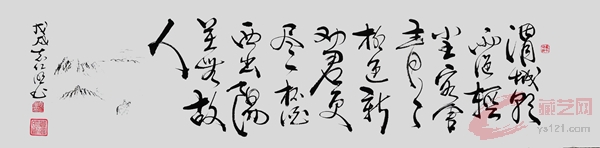 渭城朝
雨浥輕
尘客舍
青青
柳色新
劝君更
尽一杯酒
西出陽
关無故
人
戊戌
藏艺网
ys121.com